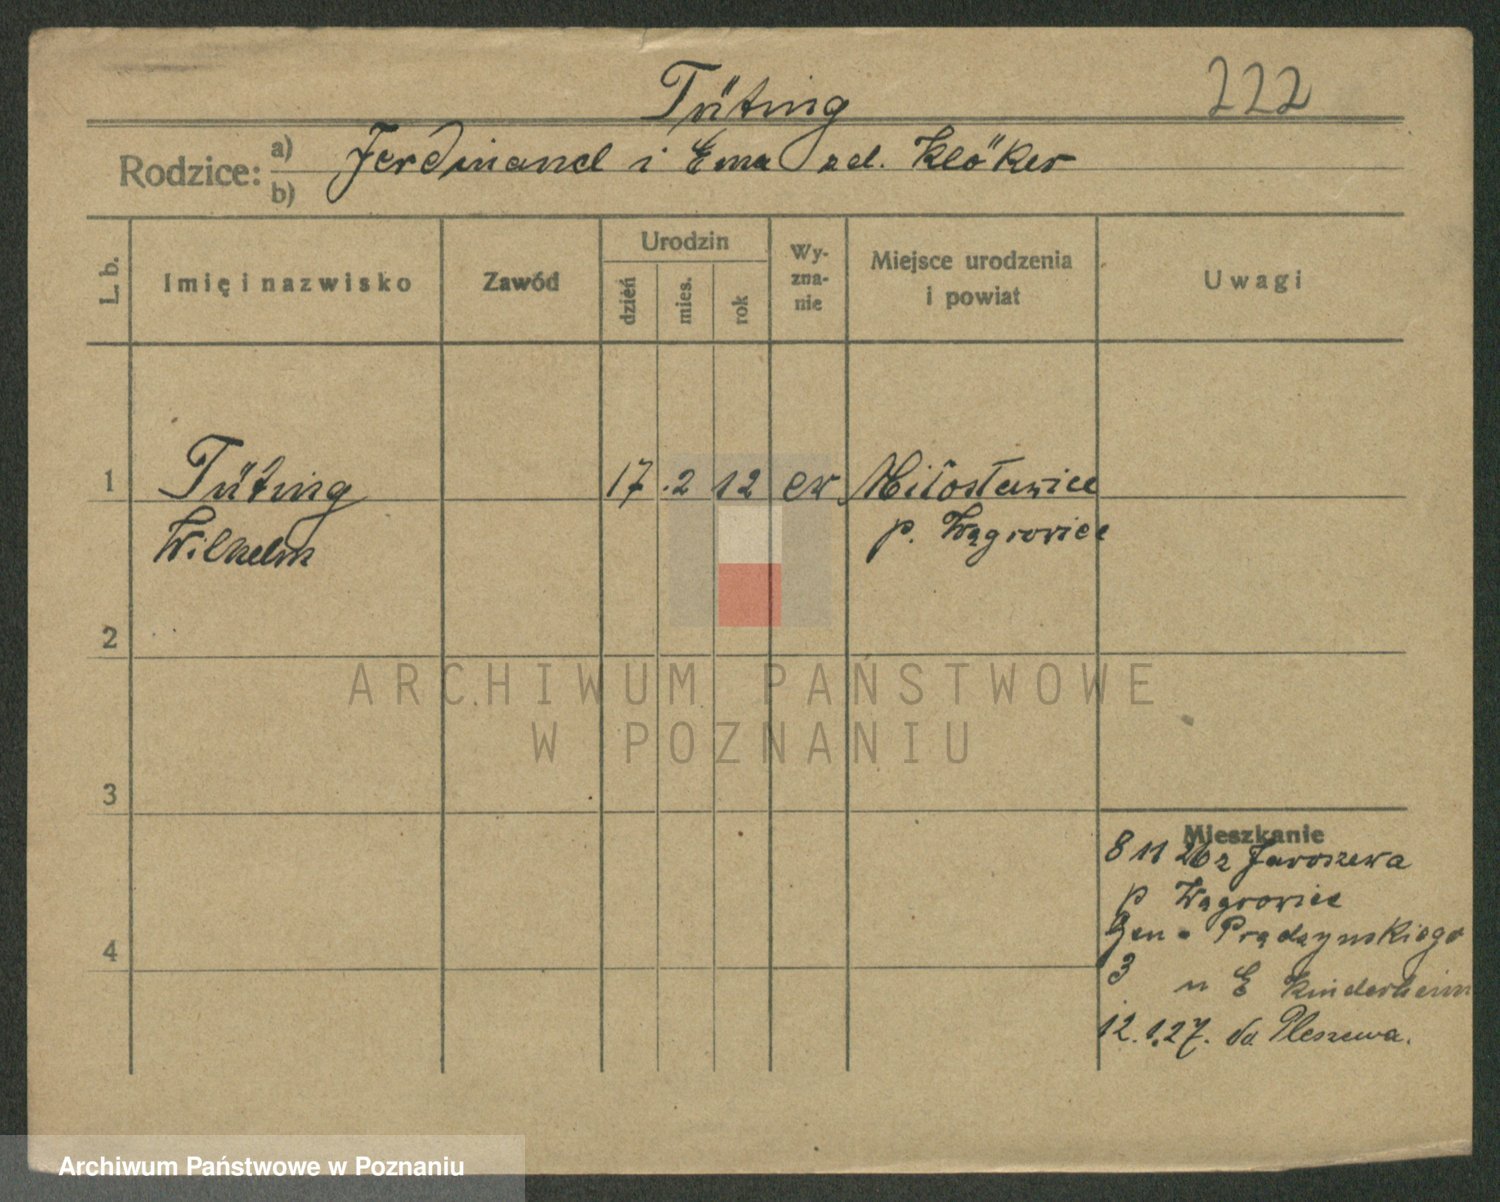 Tüting
222
Rodzice: a) b)
Ferdinand i Ema zd. Klöker
L. b.
Imię i nazwisko
Zawód
Urodzin
dzień
mies.
rok
Wy-
zna-
nie
Miejsce urodzenia
i powiat
Uwagi
1
Tüting
Wilhelm
17 .2 12 ew Miłosławice
p. Wągrowiec
2
ARCHIWUM PAŃSTWOWE
W POZNANIU
3
4
Mieszkanie
8 11 26 z Jaroszewa
p Wągrowiec
Gen - Prądzynskiego
3 u E Kinderheim
12.1.27. do Pleszewa.
Archiwum Państwowe w Poznaniu